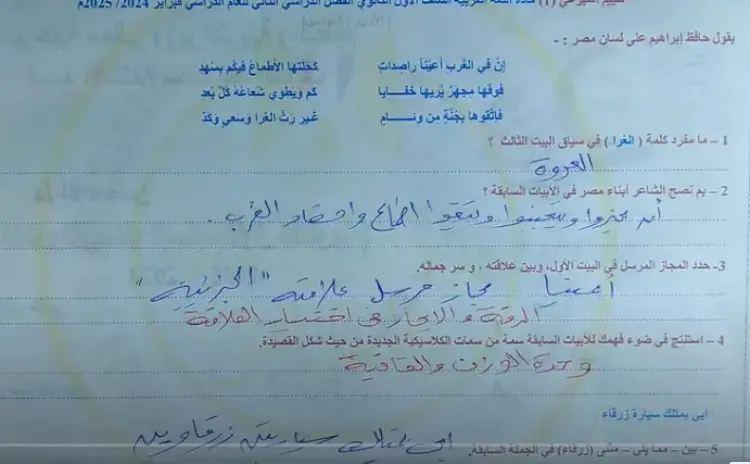 تقييم أسبوعي (1) مادة اللغة العربية الصف الأول الثانوي الفصل الدراسي الثاني للعام الدراسي فبراير 2024/ 2025م
يقول حافظ إبراهيم على لسان مصر : -
إنّ في الغرب أعيُنًا راصِداتٍ كَحَّلَتها الأطماعُ فيكُم بِسُهدِ
فَوقَها مِجهَرٌ يُريها خَفايا كُم وَيَطوي شُعاعُهُ كُلَّ بُعدِ
فَاِتَّقوها بِجُنَّةٍ مِن وِئامٍ غَيرِ رَثِّ العُرا وَسَعيٍ وَكَدِّ
1 – ما مفرد كلمة ( العُرا ) في سياق البيت الثالث ؟
العروة
2 – بم نصح الشاعر أبناء مصر في الأبيات السابقة ؟
أن يحذروا ويتجنبوا ويتقوا أطماع وأحقاد الغرب .
3- حدد المجاز المرسل في البيت الأول، وبين علاقته ، و سر جماله.
أعينا مجاز مرسل علاقته "الجزئية"
الدقة و الإيجاز في اختيار العلاقة
4 – استنتج في ضوء فهمك للأبيات السابقة سمة من سمات الكلاسيكية الجديدة من حيث شكل القصيدة.
وحدة الوزن والقافية
أبي يمتلك سيارة زرقاء
5 – بين – مما يلي – مثنى (زرقاء) في الجملة السابقة.
أبي يمتلك سيارتين زرقاوين